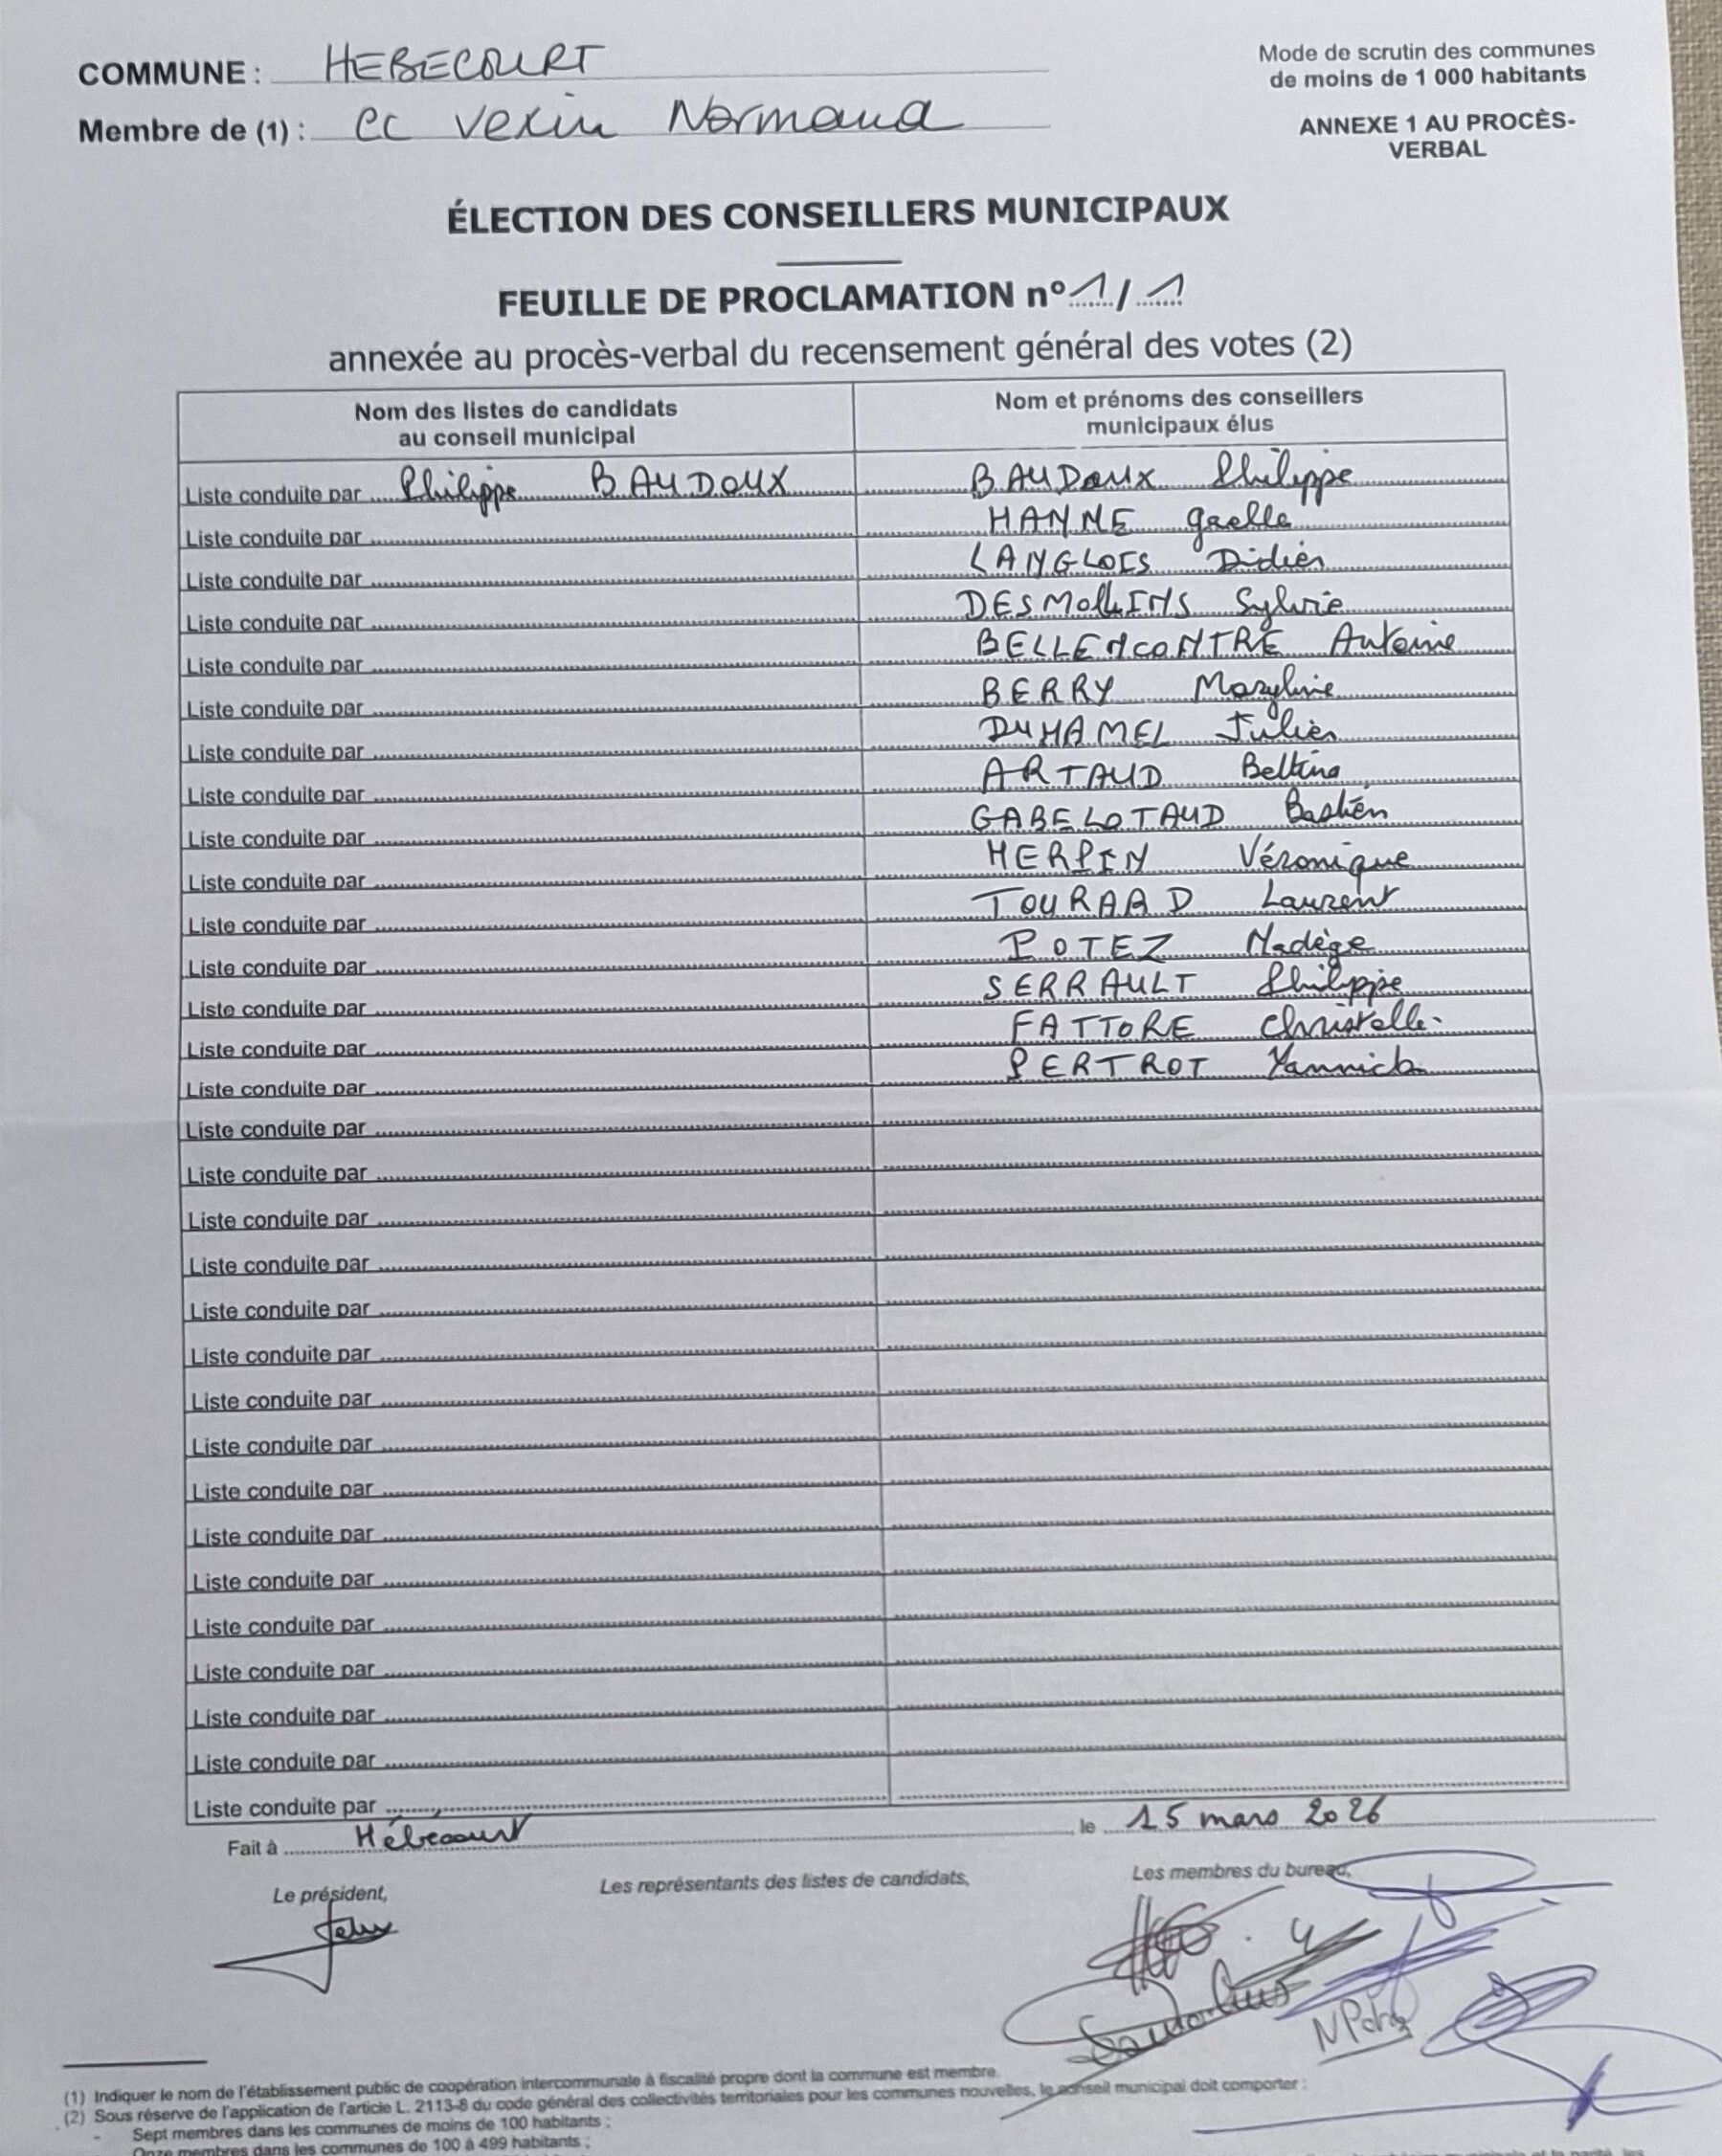 COMMUNE : HEBECOURT
Mode de scrutin des communes
de moins de 1 000 habitants
Membre de (1) : CC Vexin Normand
ANNEXE 1 AU PROCÈS-
VERBAL
ÉLECTION DES CONSEILLERS MUNICIPAUX
FEUILLE DE PROCLAMATION n° 1 / 1
annexée au procès-verbal du recensement général des votes (2)
Nom des listes de candidats
au conseil municipal
Nom et prénoms des conseillers
municipaux élus
Liste conduite par Philippe BAUDOUX BAUDOUX Philippe
Liste conduite par HANNE gaelle
Liste conduite par LANGLOIS Didier
Liste conduite par DESMOLLINS Sylvie
Liste conduite par BELLENCONTRE Antoine
Liste conduite par BERRY Maryline
Liste conduite par DUHAMEL Julien
Liste conduite par ARTAUD Bettina
Liste conduite par GABELOTAUD Bastien
Liste conduite par HERPIN Véronique
Liste conduite par TOURARD Laurent
Liste conduite par POTEZ Nadège
Liste conduite par SERRAULT Philippe
Liste conduite par FATTORE Christelle
Liste conduite par PERTROT Yannick
Liste conduite par
Liste conduite par
Liste conduite par
Liste conduite par
Liste conduite par
Liste conduite par
Liste conduite par
Liste conduite par
Liste conduite par
Liste conduite par
Liste conduite par
Liste conduite par
Liste conduite par
Liste conduite par
Liste conduite par
Liste conduite par
Fait à Hébecourt le 15 mars 2026
Le président, Les représentants des listes de candidats, Les membres du bureau,
(1) Indiquer le nom de l'établissement public de coopération intercommunale à fiscalité propre dont la commune est membre.
(2) Sous réserve de l'application de l'article L. 2113-8 du code général des collectivités territoriales pour les communes nouvelles, le conseil municipal doit comporter :
- Sept membres dans les communes de moins de 100 habitants ;
Onze membres dans les communes de 100 à 499 habitants ;